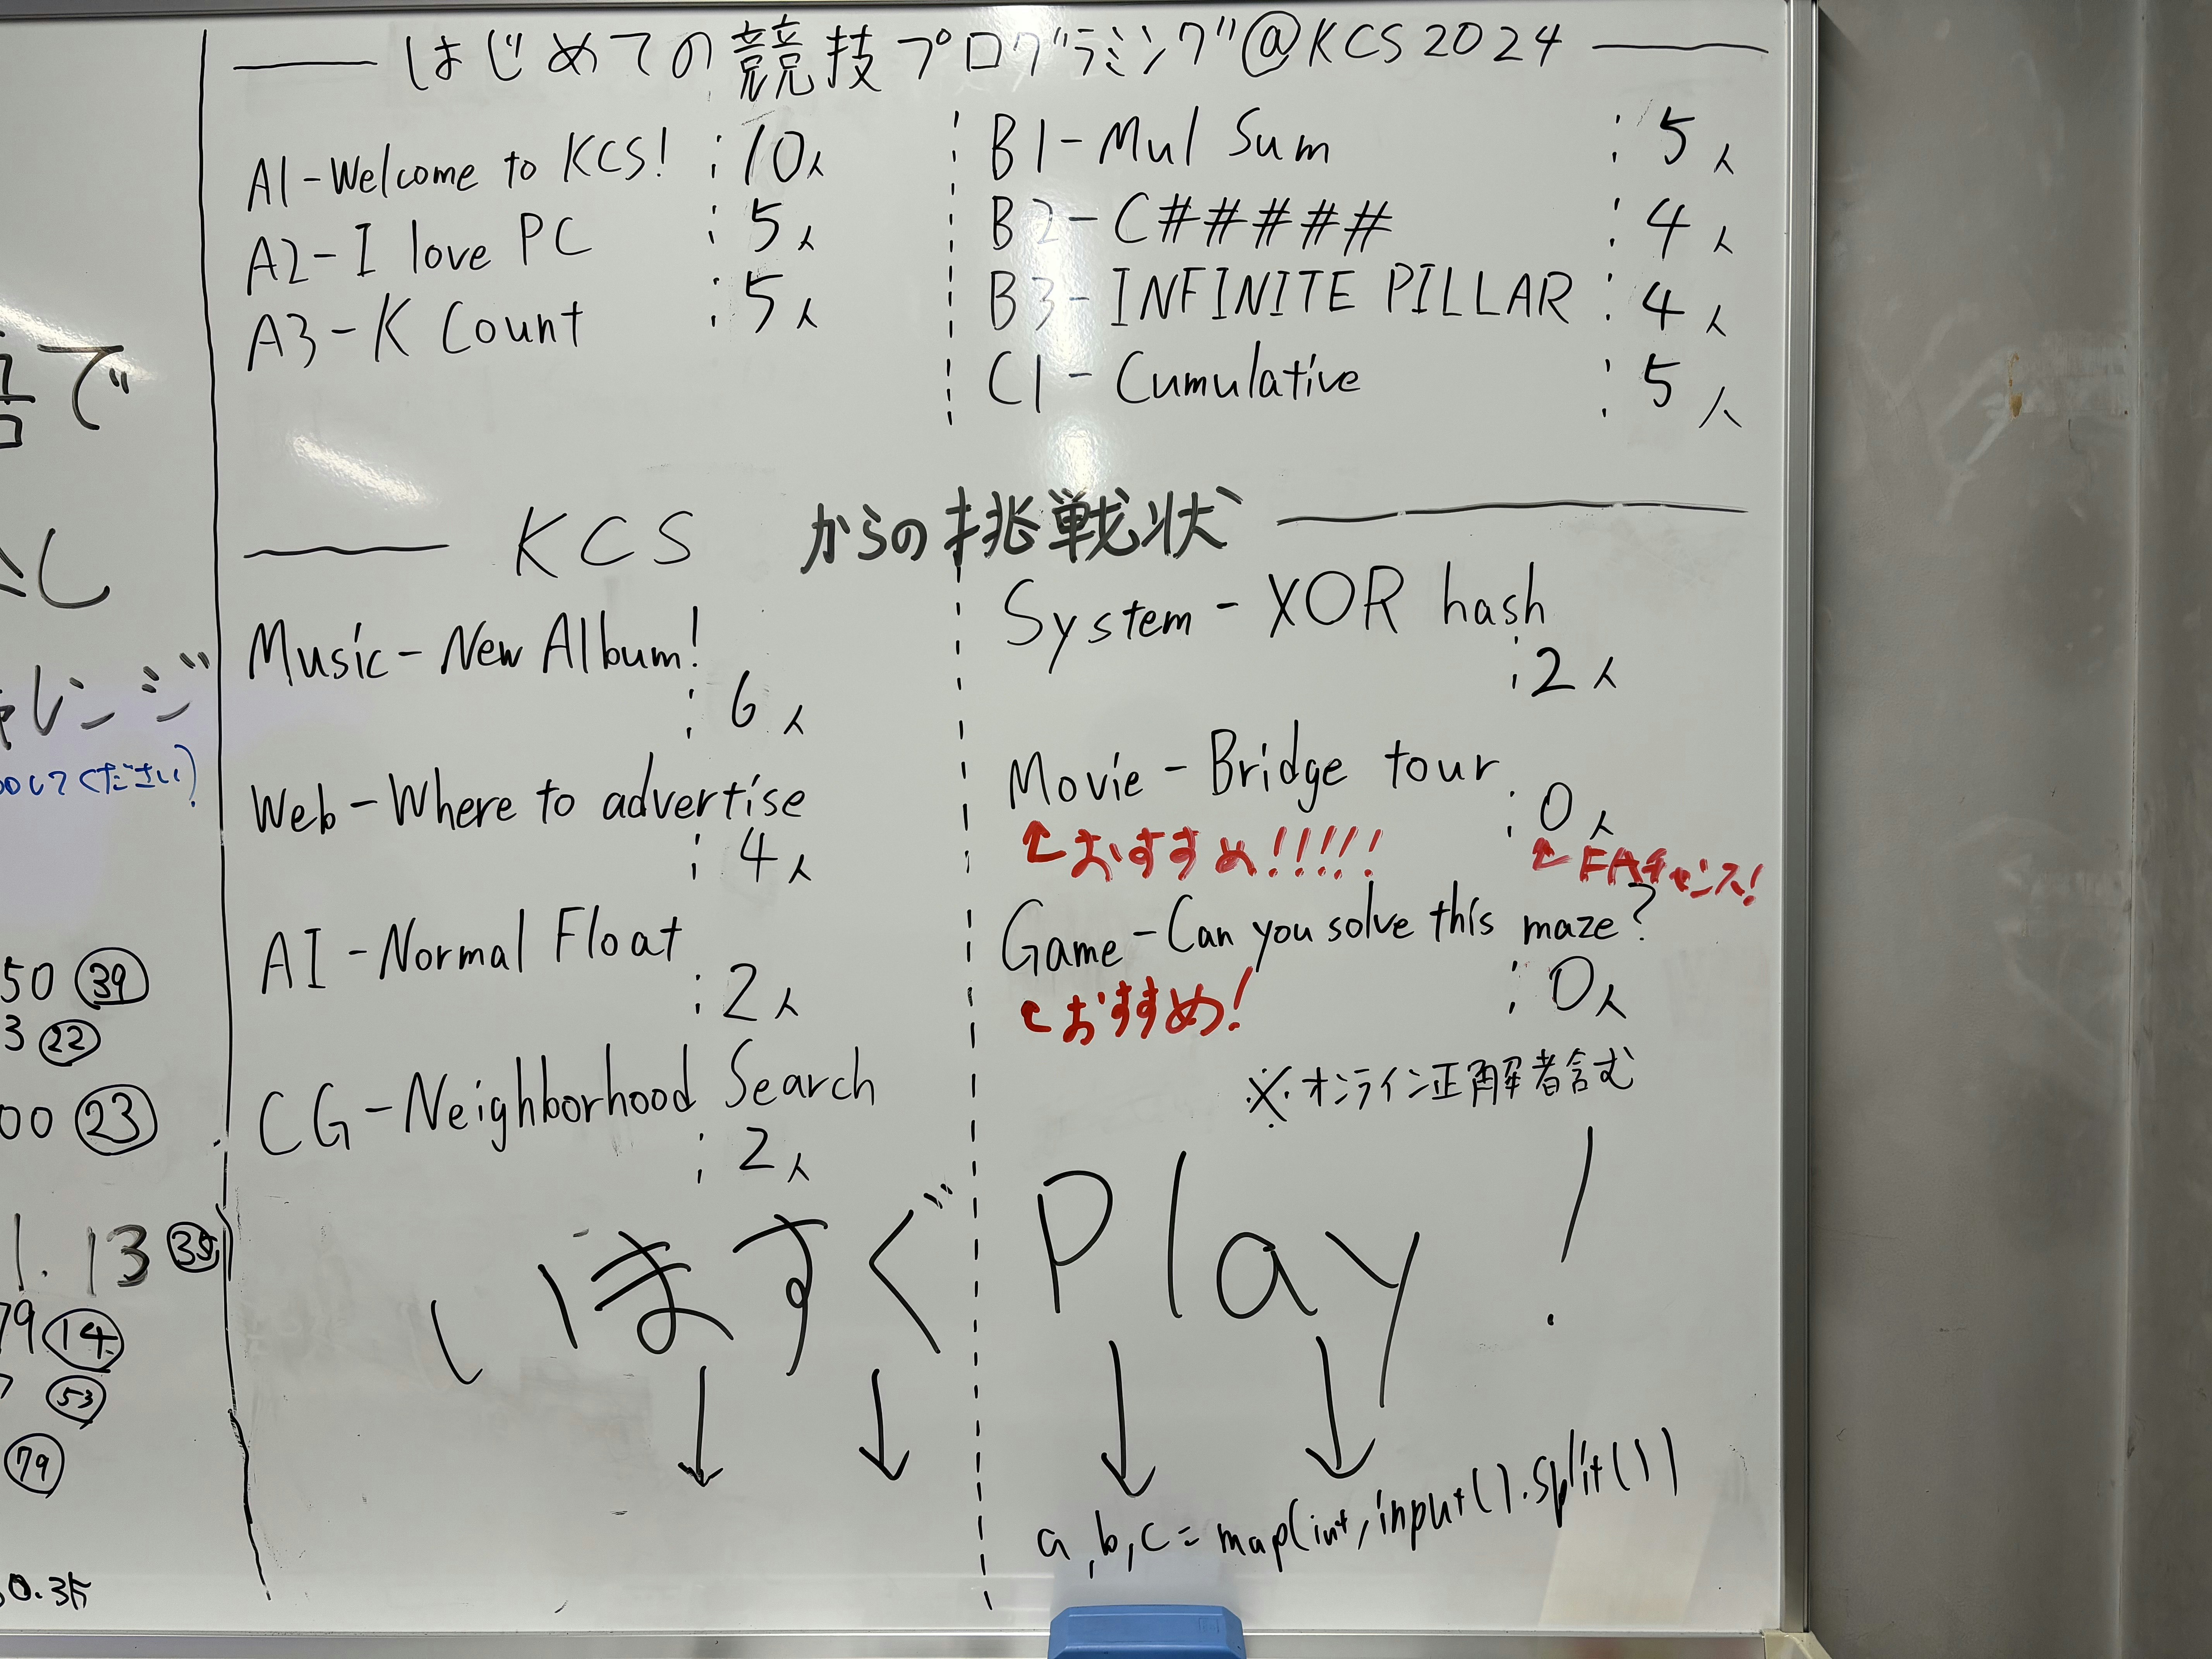 はじめての競技プログラミング@KCS2024
A1-Welcome to KCS! : 10人
A2-I love PC : 5人
A3-K Count : 5人
B1-Mul Sum : 5人
B2-C##### : 4人
B3-INFINITE PILLAR : 4人
C1-Cumulative : 5人
KCS からの挑戦状
Music-New Album!
: 6人
Web-Where to advertise
: 4人
AI-Normal Float
: 2人
CG-Neighborhood Search
: 2人
System-XOR hash
: 2人
Movie-Bridge tour
: 0人
↑おすすめ!!!!!
↑FAチャンス!
Game-Can you solve this maze?
: 0人
↑おすすめ!
※オンライン正解者含む
いますぐ Play!
↓ ↓ ↓ ↓
a,b,c=map(int,input().split())
で
し
レンジ
してください)
50 39
3 22
00 23
1.13
79 14
53
79